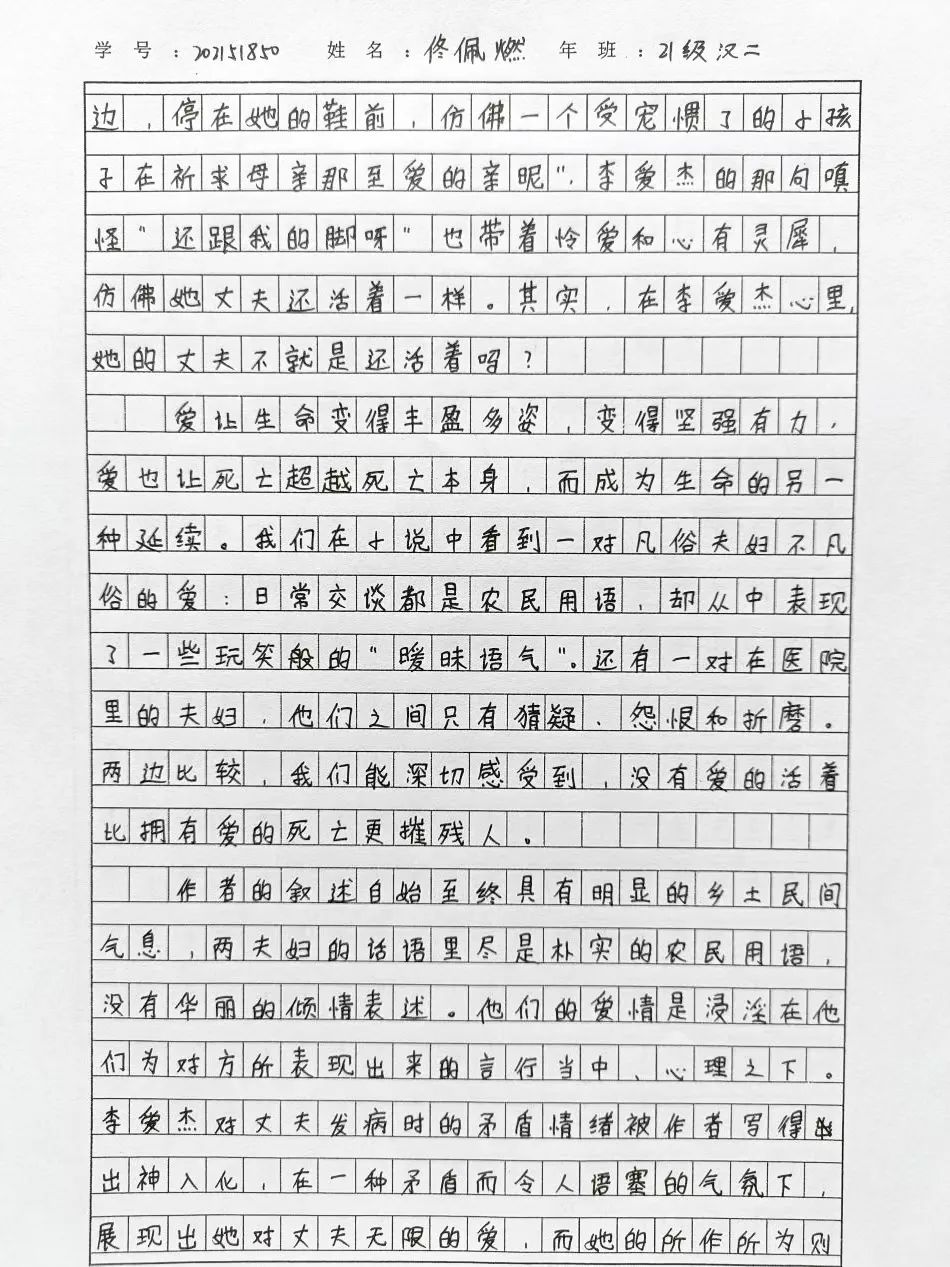 学号：202151850 姓名：佟佩燃 年班：21级汉二
边，停在她的鞋前，仿佛一个受宠惯了的小孩
子在祈求母亲那至爱的亲昵”，李爱杰的那句嗔
怪“还跟我的脚呀”也带着怜爱和心有灵犀，
仿佛她丈夫还活着一样。其实，在李爱杰心里，
她的丈夫不就是还活着吗？
爱让生命变得丰盈多姿，变得坚强有力，
爱也让死亡超越死亡本身，而成为生命的另一
种延续。我们在小说中看到一对凡俗夫妇不凡
俗的爱：日常交谈都是农民用语，却从中表现
了一些玩笑般的“暧昧语气”。还有一对在医院
里的夫妇，他们之间只有猜疑、怨恨和折磨。
两边比较，我们能深切感受到，没有爱的活着
比拥有爱的死亡更摧残人。
作者的叙述自始至终具有明显的乡土民间
气息，两夫妇的话语里尽是朴实的农民用语，
没有华丽的倾情表述。他们的爱情是浸淫在他
们为对方所表现出来的言行当中、心理之下。
李爱杰对丈夫发病时的矛盾情绪被作者写得
出神入化，在一种矛盾而令人语塞的气氛下，
展现出她对丈夫无限的爱，而她的所作所为则